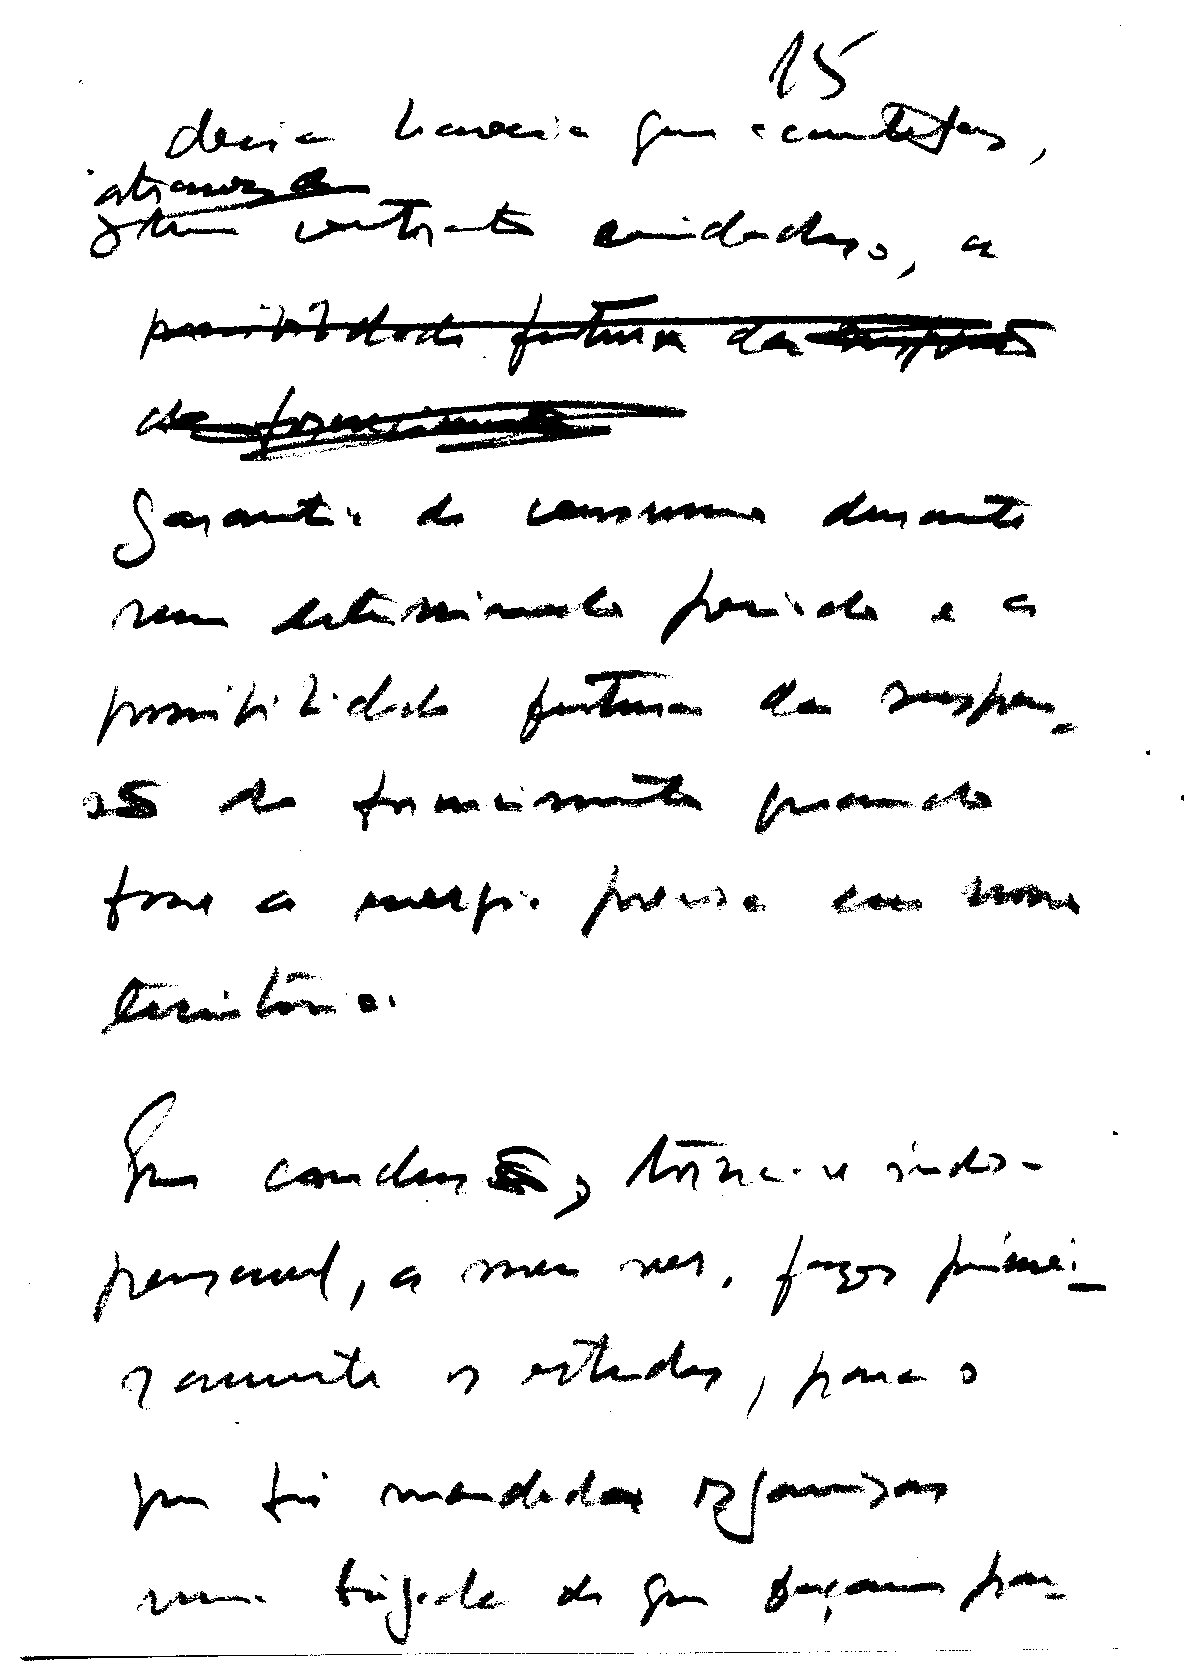 15
deria haveria que acautelar,
através de
um contrato cuidadoso, a
possibilidade futura da
de fornecimento
garantia do consumo durante
um determinado período e a
possibilidade futura da suspen-
são do fornecimento quando
fosse a energia precisa em nosso
território.
Em conclusão, torna-se indis-
pensável, a meu ver, fazer primei-
ramente os estudos, para o
que foi mandada organizar
uma brigada de que façam par-